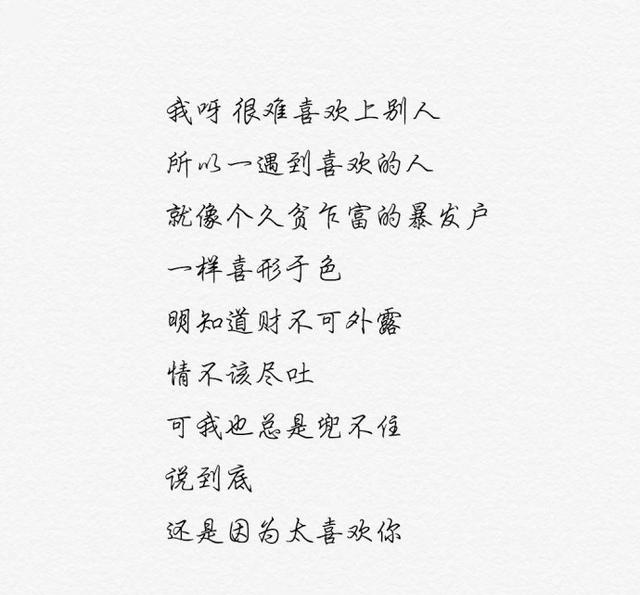 我呀 很难喜欢上别人
所以一遇到喜欢的人
就像个久贫乍富的暴发户
一样喜形于色
明知道财不可外露
情不该尽吐
可我也总是兜不住
说到底
还是因为太喜欢你